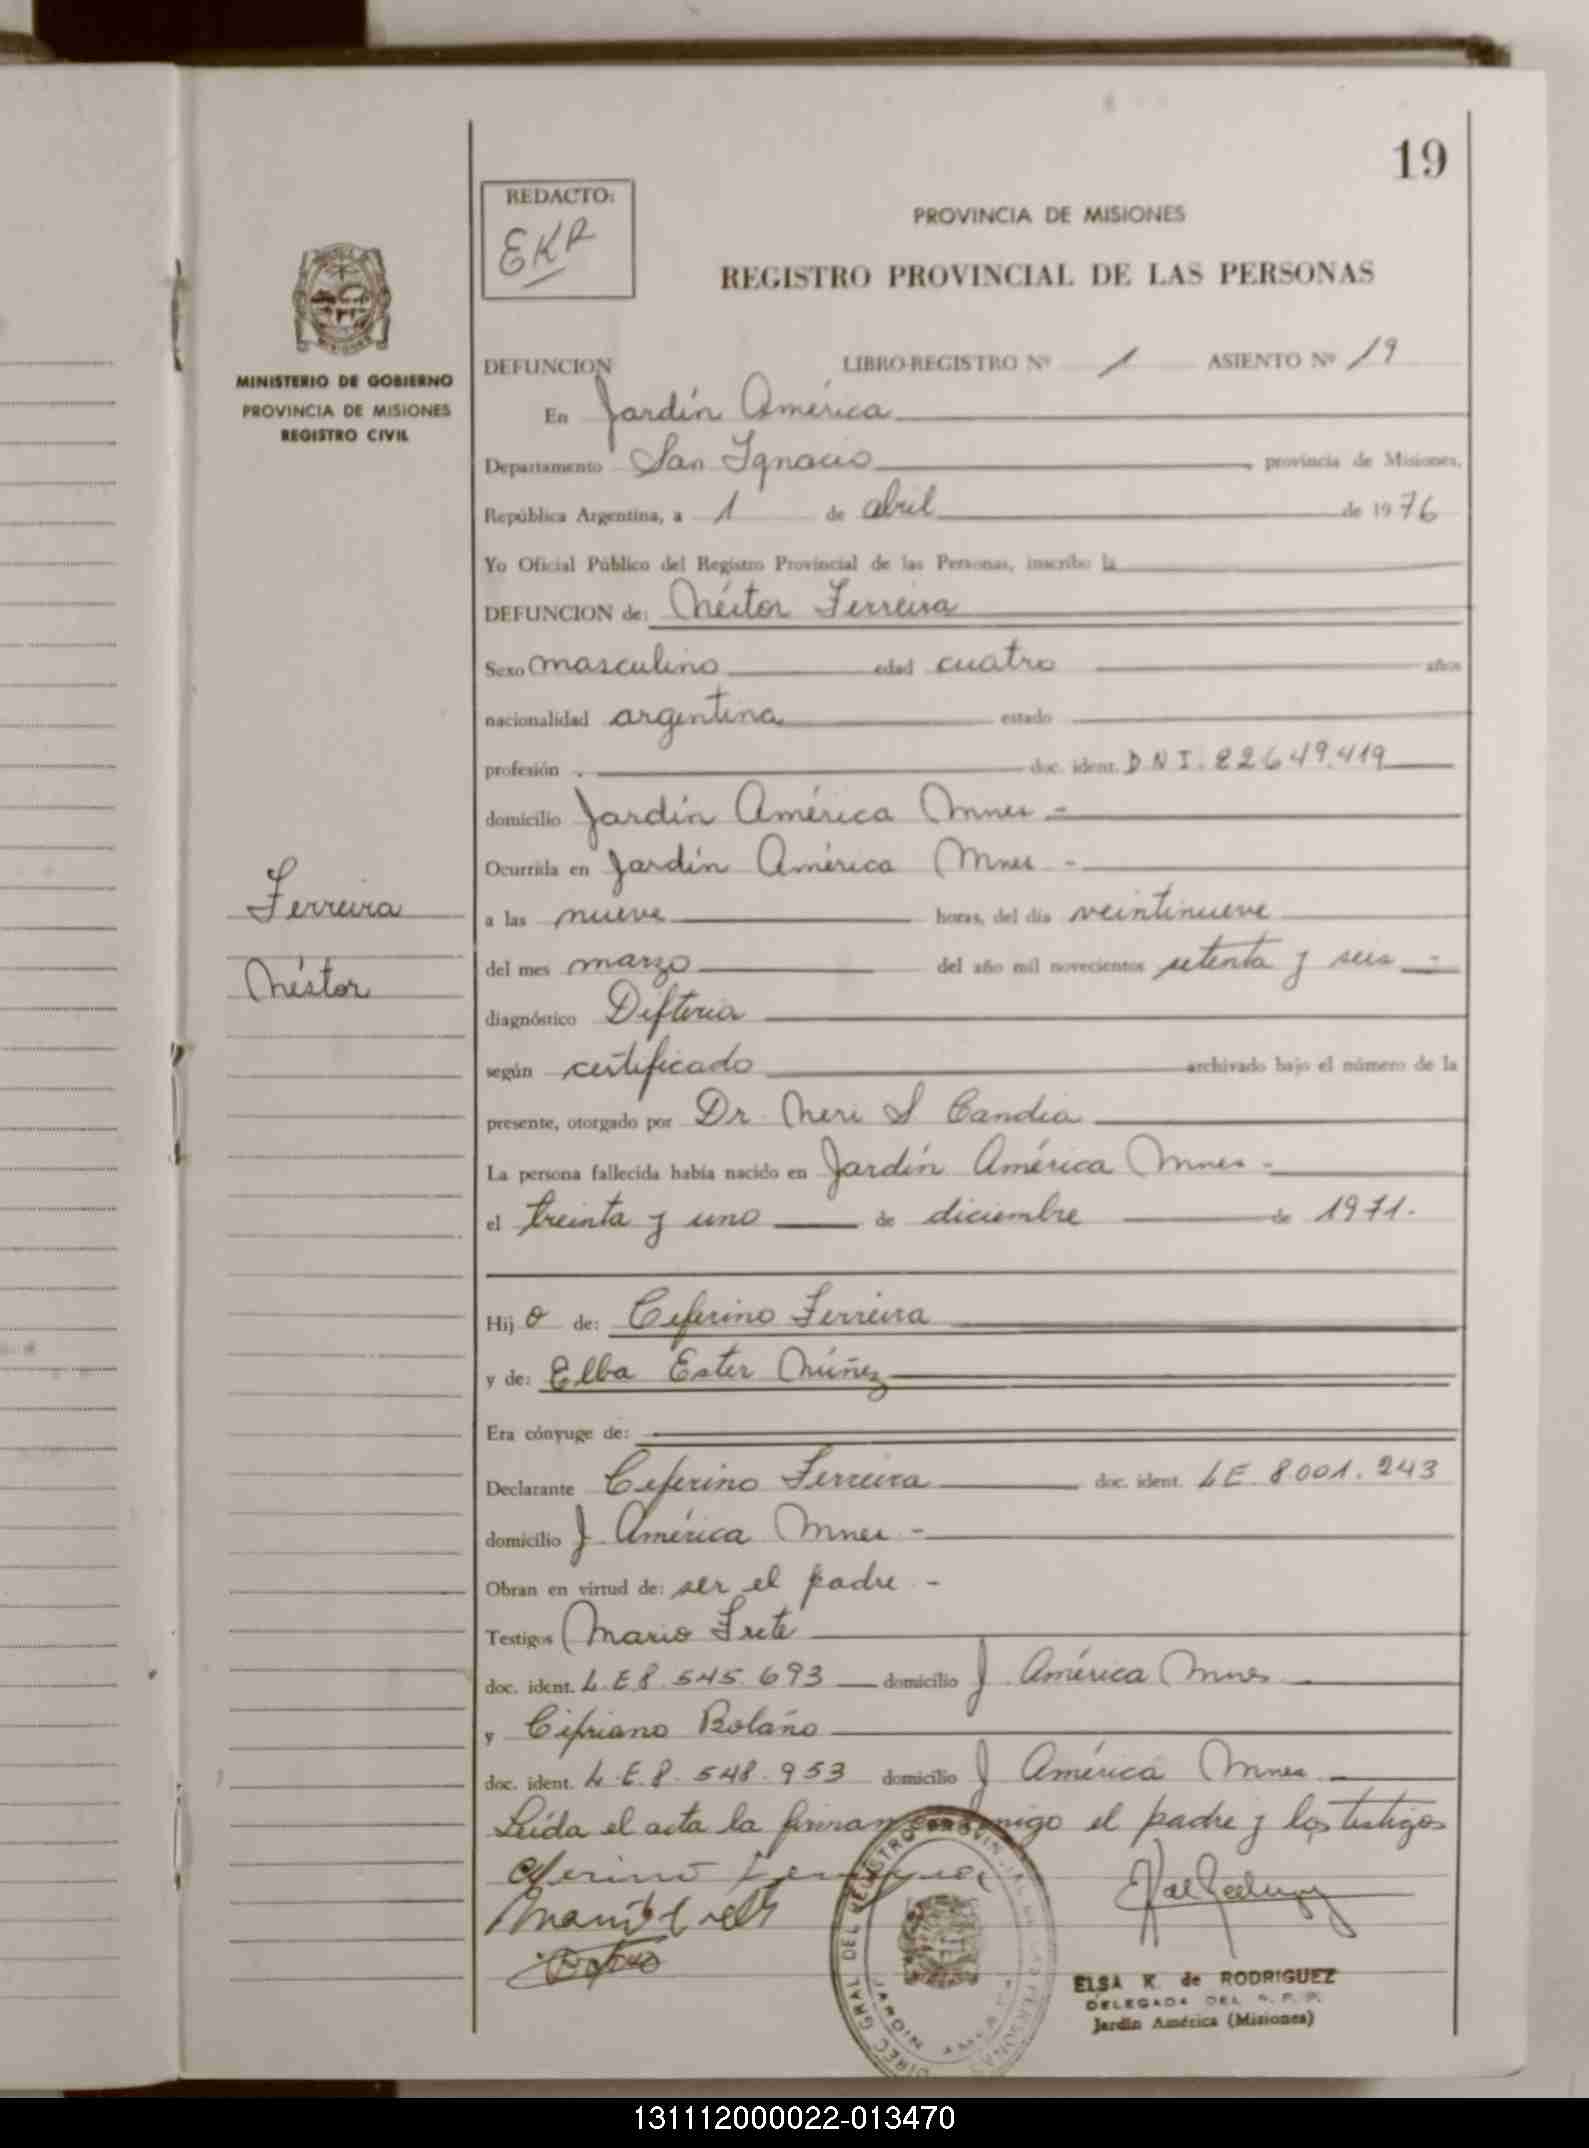 19
REDACTO:
EKR
PROVINCIA DE MISIONES
REGISTRO PROVINCIAL DE LAS PERSONAS
MINISTERIO DE GOBIERNO
PROVINCIA DE MISIONES
REGISTRO CIVIL
DEFUNCION LIBRO-REGISTRO Nº 1 ASIENTO Nº 19
En Jardín América
Departamento San Ignacio, provincia de Misiones,
República Argentina, a 1 de abril de 1976
Yo Oficial Público del Registro Provincial de las Personas, inscribo la
DEFUNCION de: Néstor Ferreira
Sexo masculino edad cuatro años
nacionalidad argentina estado
profesión . doc. ident. D N I. 22649.419
domicilio Jardín América Mnes -
Ocurrida en Jardín América Mnes -
Ferreira
Néstor
a las nueve horas, del día veintinueve
del mes marzo del año mil novecientos setenta y seis -
diagnóstico Difteria
según certificado archivado bajo el número de la
presente, otorgado por Dr. Neri S Candia
La persona fallecida había nacido en Jardín América Mnes -
el treinta y uno de diciembre de 1971.
Hijo de: Ceferino Ferreira
y de: Elba Ester Núñez
Era cónyuge de:
Declarante Ceferino Ferreira doc. ident. LE 8.001.243
domicilio J. América Mnes -
Obran en virtud de: ser el padre -
Testigos Mario Frete
doc. ident. L.E 8.545.693 domicilio J. América Mnes
y Cipriano Bolaño
doc. ident. L.E.8.548.953 domicilio J América Mnes
Leída el acta la firman conmigo el padre y los testigos
DIREC GRAL DEL REGISTRO PROVINCIAL DE LAS PERSONAS
JARDIN AMERICA
ELSA K. de RODRIGUEZ
DELEGADA DEL R. P. P.
Jardín América (Misiones)
131112000022-013470